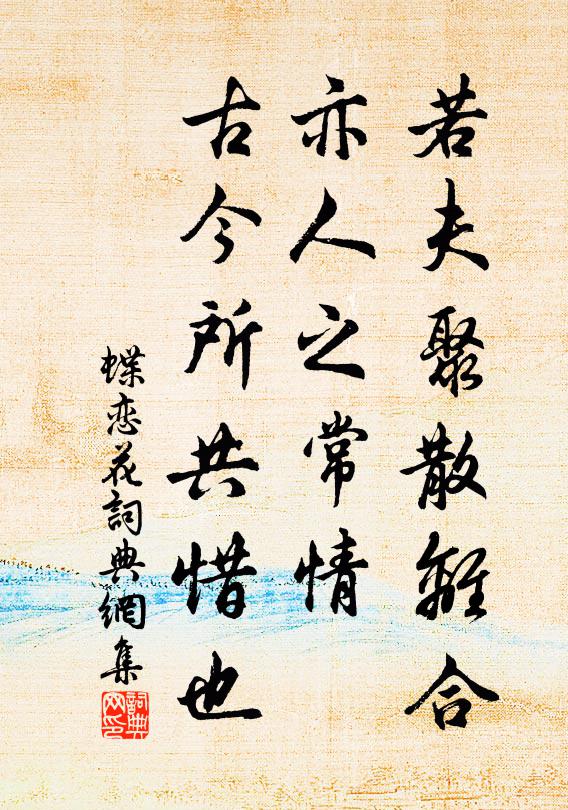 若夫聚散離合
亦人之常情
古今所共惜也
蝶恋花詞典網集
詞典
网印